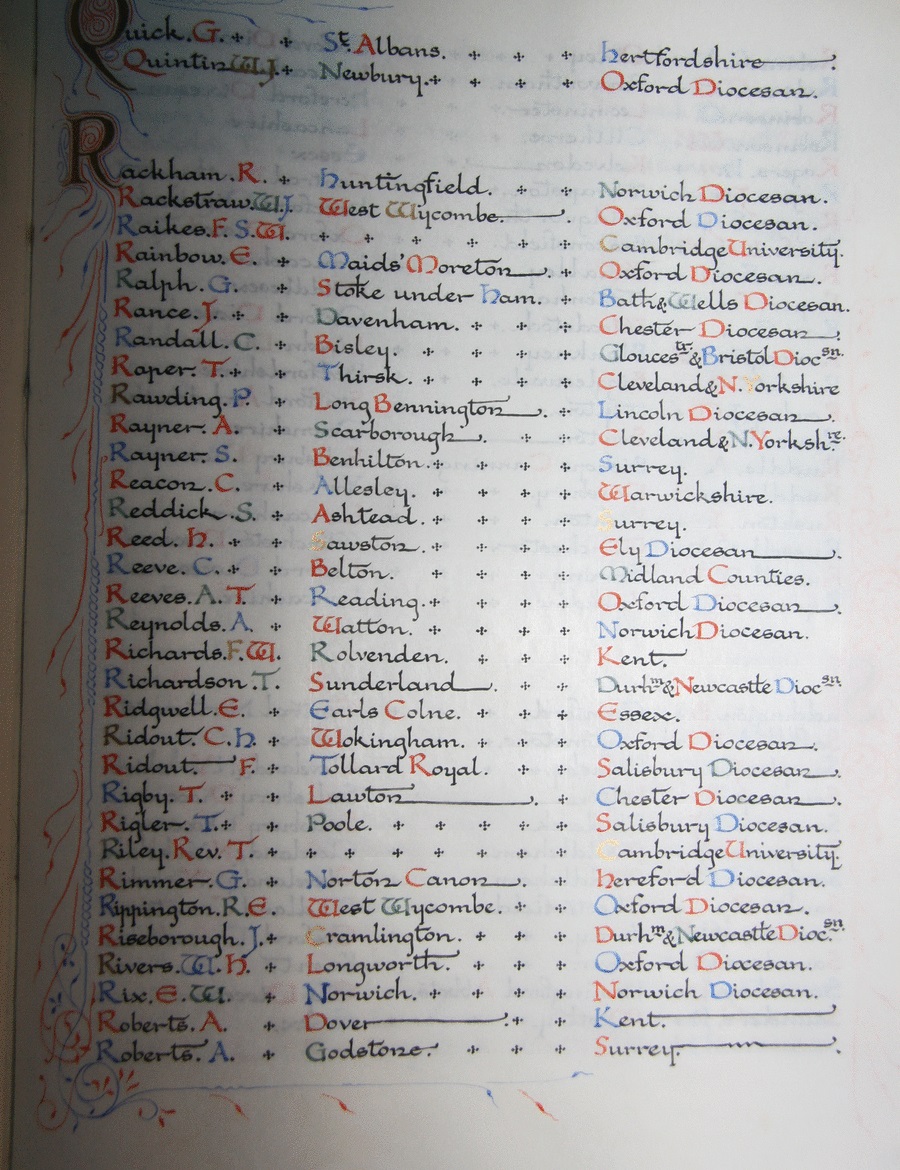 Quick. G. St. Albans. Hertfordshire.
Quintin W.J. Newbury. Oxford Diocesan.
Rackham. R. Huntingfield. Norwich Diocesan.
Rackstraw. W.J. West Wycombe. Oxford Diocesan.
Raikes. F. S. W. Cambridge University.
Rainbow. E. Maids' Moreton. Oxford Diocesan.
Ralph. G. Stoke under Ham. Bath & Wells Diocesan.
Rance. J. Davenham. Chester Diocesan.
Randall. C. Bisley. Gloucestr & Bristol Diocsn.
Raper. T. Thirsk. Cleveland & N. Yorkshire
Rawding. P. Long Bennington. Lincoln Diocesan.
Rayner. A. Scarborough. Cleveland & N. Yorkshre.
Rayner. S. Benhilton. Surrey.
Reacon. C. Allesley. Warwickshire.
Reddick. S. Ashtead. Surrey.
Reed. H. Sawston. Ely Diocesan.
Reeve. C. Belton. Midland Counties.
Reeves. A. T. Reading. Oxford Diocesan.
Reynolds. A. Watton. Norwich Diocesan.
Richards. F. W. Rolvenden. Kent.
Richardson T. Sunderland. Durhm & Newcastle Diocsn.
Ridgwell. E. Earls Colne. Essex.
Ridout. C. H. Wokingham. Oxford Diocesan.
Ridout. F. Tollard Royal. Salisbury Diocesan.
Rigby. T. Lawton. Chester Diocesan.
Rigler. T. Poole. Salisbury Diocesan.
Riley. Rev. T. Cambridge University.
Rimmer. G. Norton Canon. Hereford Diocesan.
Rippington. R. E. West Wycombe. Oxford Diocesan.
Riseborough. J. Cramlington. Durhm & Newcastle Diocsn.
Rivers. W. H. Longworth. Oxford Diocesan.
Rix. E. W. Norwich. Norwich Diocesan.
Roberts. A. Dover. Kent.
Roberts. A. Godstone. Surrey.